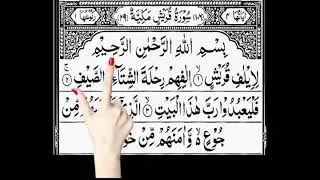 سُوْرَةُ قُرَيْشٍ مَكِّيَّةٌ
بِسْمِ اللّٰهِ الرَّحْمٰنِ الرَّحِيْمِ
لِاِيْلٰفِ قُرَيْشٍ ١ اٖلٰفِهِمْ رِحْلَةَ الشِّتَآءِ وَالصَّيْفِ ٢
فَلْيَعْبُدُوْا رَبَّ هٰذَا الْبَيْتِ ٣ مِّنْ
جُوْعٍ ۙ وَّاٰمَنَهُمْ مِّنْ